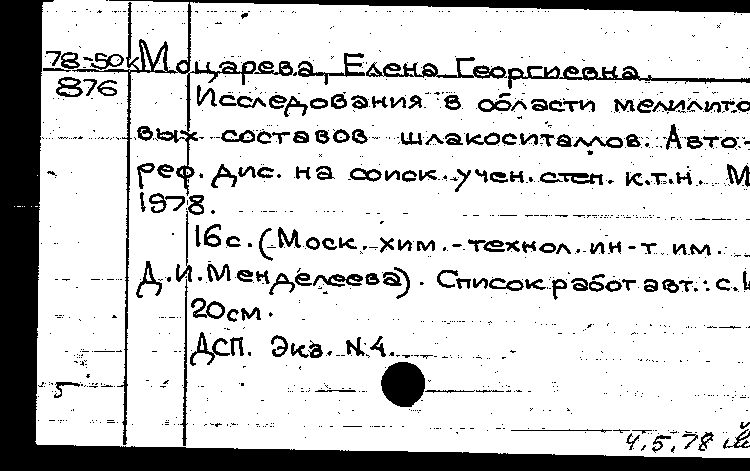 78-50к Моцарева, Елена Георгиевна.
876
Исследования в области мелилито
вых составов шлакоситаллов. Авто-
реф. дис. на соиск. учен. степ. к.т.н. М
1978.
16с. (Моск. хим.-технол. ин-т им.
Д.И. Менделеева). Список работ авт.: с.
20см.
ДСП. Экз. N4.
5
4.5.78